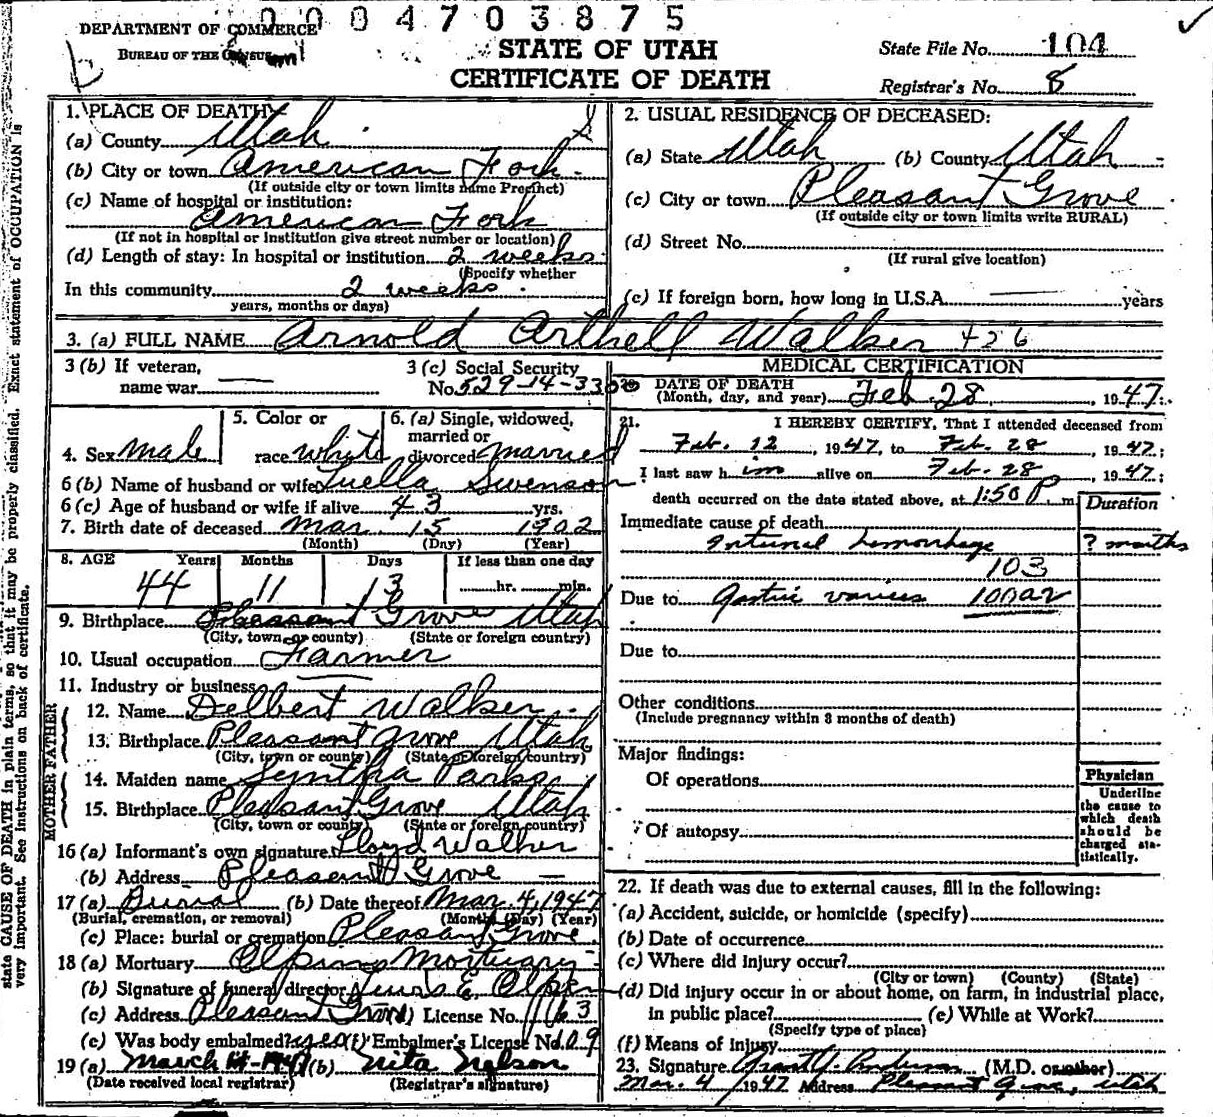 0004703875
DEPARTMENT OF COMMERCE
BUREAU OF THE CENSUS
STATE OF UTAH
CERTIFICATE OF DEATH
State File No. 104
Registrar's No. 8
1. PLACE OF DEATH
(a) County Utah
(b) City or town American Fork
(If outside city or town limits name Precinct)
(c) Name of hospital or institution:
American Fork
(If not in hospital or institution give street number or location)
(d) Length of stay: In hospital or institution 2 weeks
(Specify whether
In this community 2 weeks
years, months or days)
2. USUAL RESIDENCE OF DECEASED:
(a) State Utah (b) County Utah
(c) City or town Pleasant Grove
(If outside city or town limits write RURAL)
(d) Street No.
(If rural give location)
(e) If foreign born, how long in U.S.A. years
3. (a) FULL NAME Arnold Arthell Walker 426
3 (b) If veteran,
name war
3 (c) Social Security
No. 529-14-3300
4. Sex Male
5. Color or
race white
6. (a) Single, widowed,
married or
divorced married
6 (b) Name of husband or wife Luella Swenson
6 (c) Age of husband or wife if alive 43 yrs.
7. Birth date of deceased Mar 15 1902
(Month) (Day) (Year)
8. AGE Years Months Days If less than one day
44 11 13 hr. min.
9. Birthplace Pleasant Grove Utah
(City, town or county) (State or foreign country)
10. Usual occupation Farmer
11. Industry or business
FATHER
12. Name Delbert Walker
13. Birthplace Pleasant Grove Utah
(City, town or county) (State or foreign country)
MOTHER
14. Maiden name Syntha Parker
15. Birthplace Pleasant Grove Utah
(City, town or county) (State or foreign country)
16 (a) Informant's own signature Lloyd Walker
(b) Address Pleasant Grove
17 (a) Burial (b) Date thereof Mar. 4, 1947
(Burial, cremation, or removal) (Month) (Day) (Year)
(c) Place: burial or cremation Pleasant Grove
18 (a) Mortuary Olpin Mortuary
(b) Signature of funeral director E Olpin
(c) Address Pleasant Grove (d) License No. 163
(e) Was body embalmed? yes (f) Embalmer's License No. 09
19 (a) March 4-1947 (b) Nita Nelson
(Date received local registrar) (Registrar's signature)
MEDICAL CERTIFICATION
20. DATE OF DEATH
(Month, day, and year) Feb. 28, 1947
21. I HEREBY CERTIFY, That I attended deceased from
Feb. 12, 1947, to Feb. 28, 1947;
I last saw him alive on Feb. 28, 1947;
death occurred on the date stated above, at 1:50 P. m.
Duration
Immediate cause of death
Internal hemorrhage ? months
103
Due to Gastric varices 100a2
Due to
Other conditions
(Include pregnancy within 3 months of death)
Major findings:
Of operations
Of autopsy
Physician
Underline
the cause to
which death
should be
charged sta-
tistically.
22. If death was due to external causes, fill in the following:
(a) Accident, suicide, or homicide (specify)
(b) Date of occurrence
(c) Where did injury occur?
(City or town) (County) (State)
(d) Did injury occur in or about home, on farm, in industrial place,
in public place? (e) While at Work?
(Specify type of place)
(f) Means of injury
23. Signature Grant Y. Anderson (M.D. or other)
Mar. 4 1947 Address Pleasant Grove, Utah
state CAUSE OF DEATH in plain terms, so that it may be properly classified. Exact statement of OCCUPATION is
very important. See instructions on back of certificate.